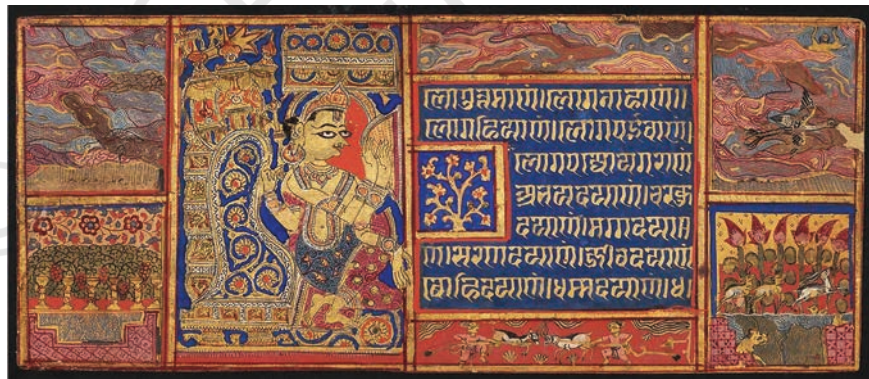 लोगुत्तमाणं।लोगनाहाणं।
लोगहियाणं।लोगपईवाणं।
लोगपज्जोअगराणं
अभयदयाणं।चक्खु
दयाणं।मग्गदया
णं।सरणदयाणं।जीवदयाणं
बोहिदयाणं।धम्मदयाणं।ध।